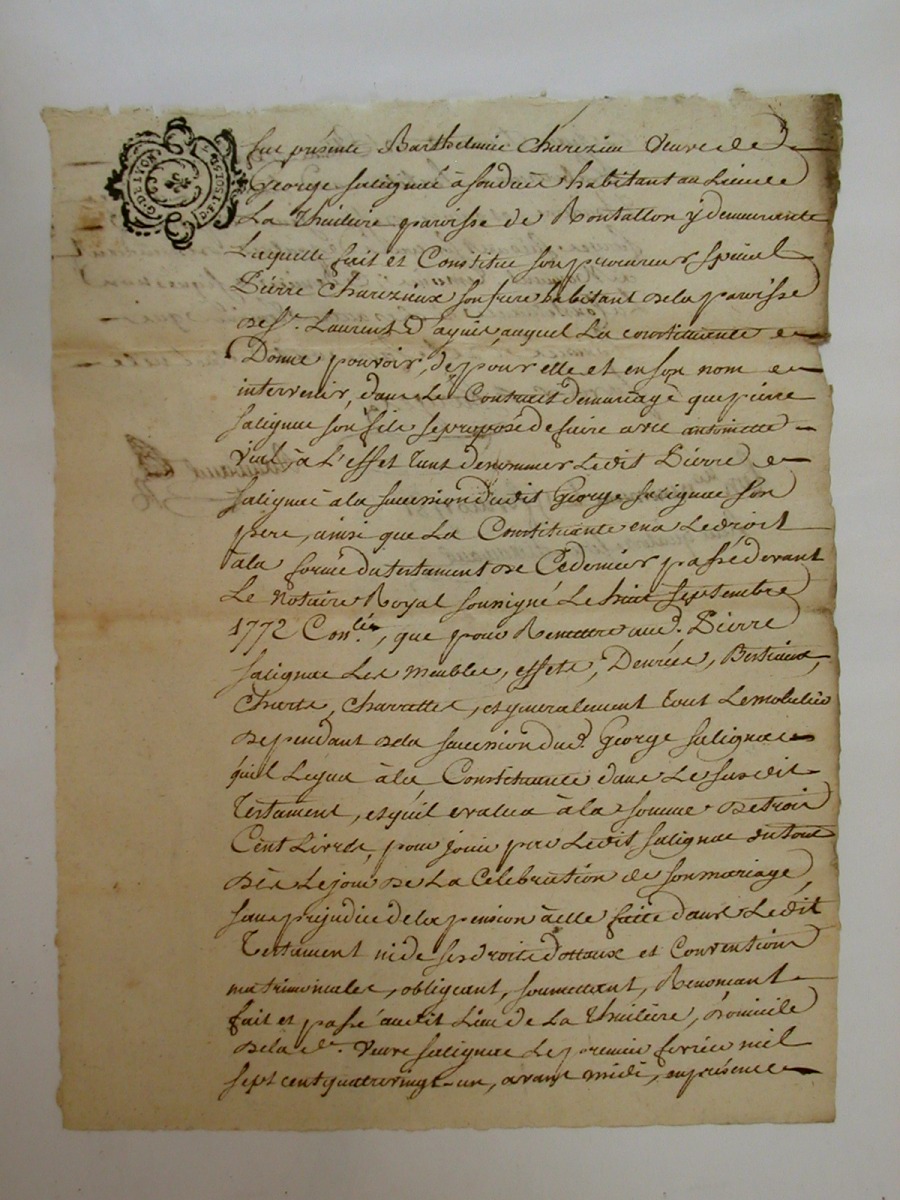 G. D. LYON
fut présente Barthelmie Charezieu Veuve de
George Salignac à son décès habitant au Lieu de
La Thuilière paroisse de Rontallon y demeurante
Laquelle fait et Constitue son procureur spécial
Pierre Charezieux son frère habitant de la paroisse
de St. Laurent d'agnis, auquel La constituante
Donne pouvoir, de pour elle et en son nom
intervenir, dans Le Contract de mariage que pierre
Salignac son fils se propose de faire avec antoinette
Vial, à L'effet tant de nommer Ledit Pierre
Salignac à la succession dudit George Salignac son
pere, ainsi que La Constituante en a Le droit
à la forme du testament de Ce dernier passé devant
Le Notaire Royal soussigné Le huit septembre
1772 Con.lé, que pour Remettre aud. Pierre
Salignac Les meubles, effets, Denrées, Bestiaux,
Chars, Charrettes, et generalement tout Le mobilier
dependant de la succession dud. George Salignac
qu'il Legua à la Constituante dans Le susdit
Testament, et qu'il evalua à la somme de trois
Cent Livres, pour jouir par Ledit Salignac du tout
dès Le jour de La Célébration de son mariage,
sans préjudice de la pension à elle faite dans Ledit
Testament ni de ses droits dottaux et Conventions
matrimoniales, obligeant, soumettant, Renonçant
fait et passé audit Lieu de La Thuilière, domicile
de la de. Veuve Salignac Le premier fevrier mil
sept cent quatrevingt-un, avant midi, en présence